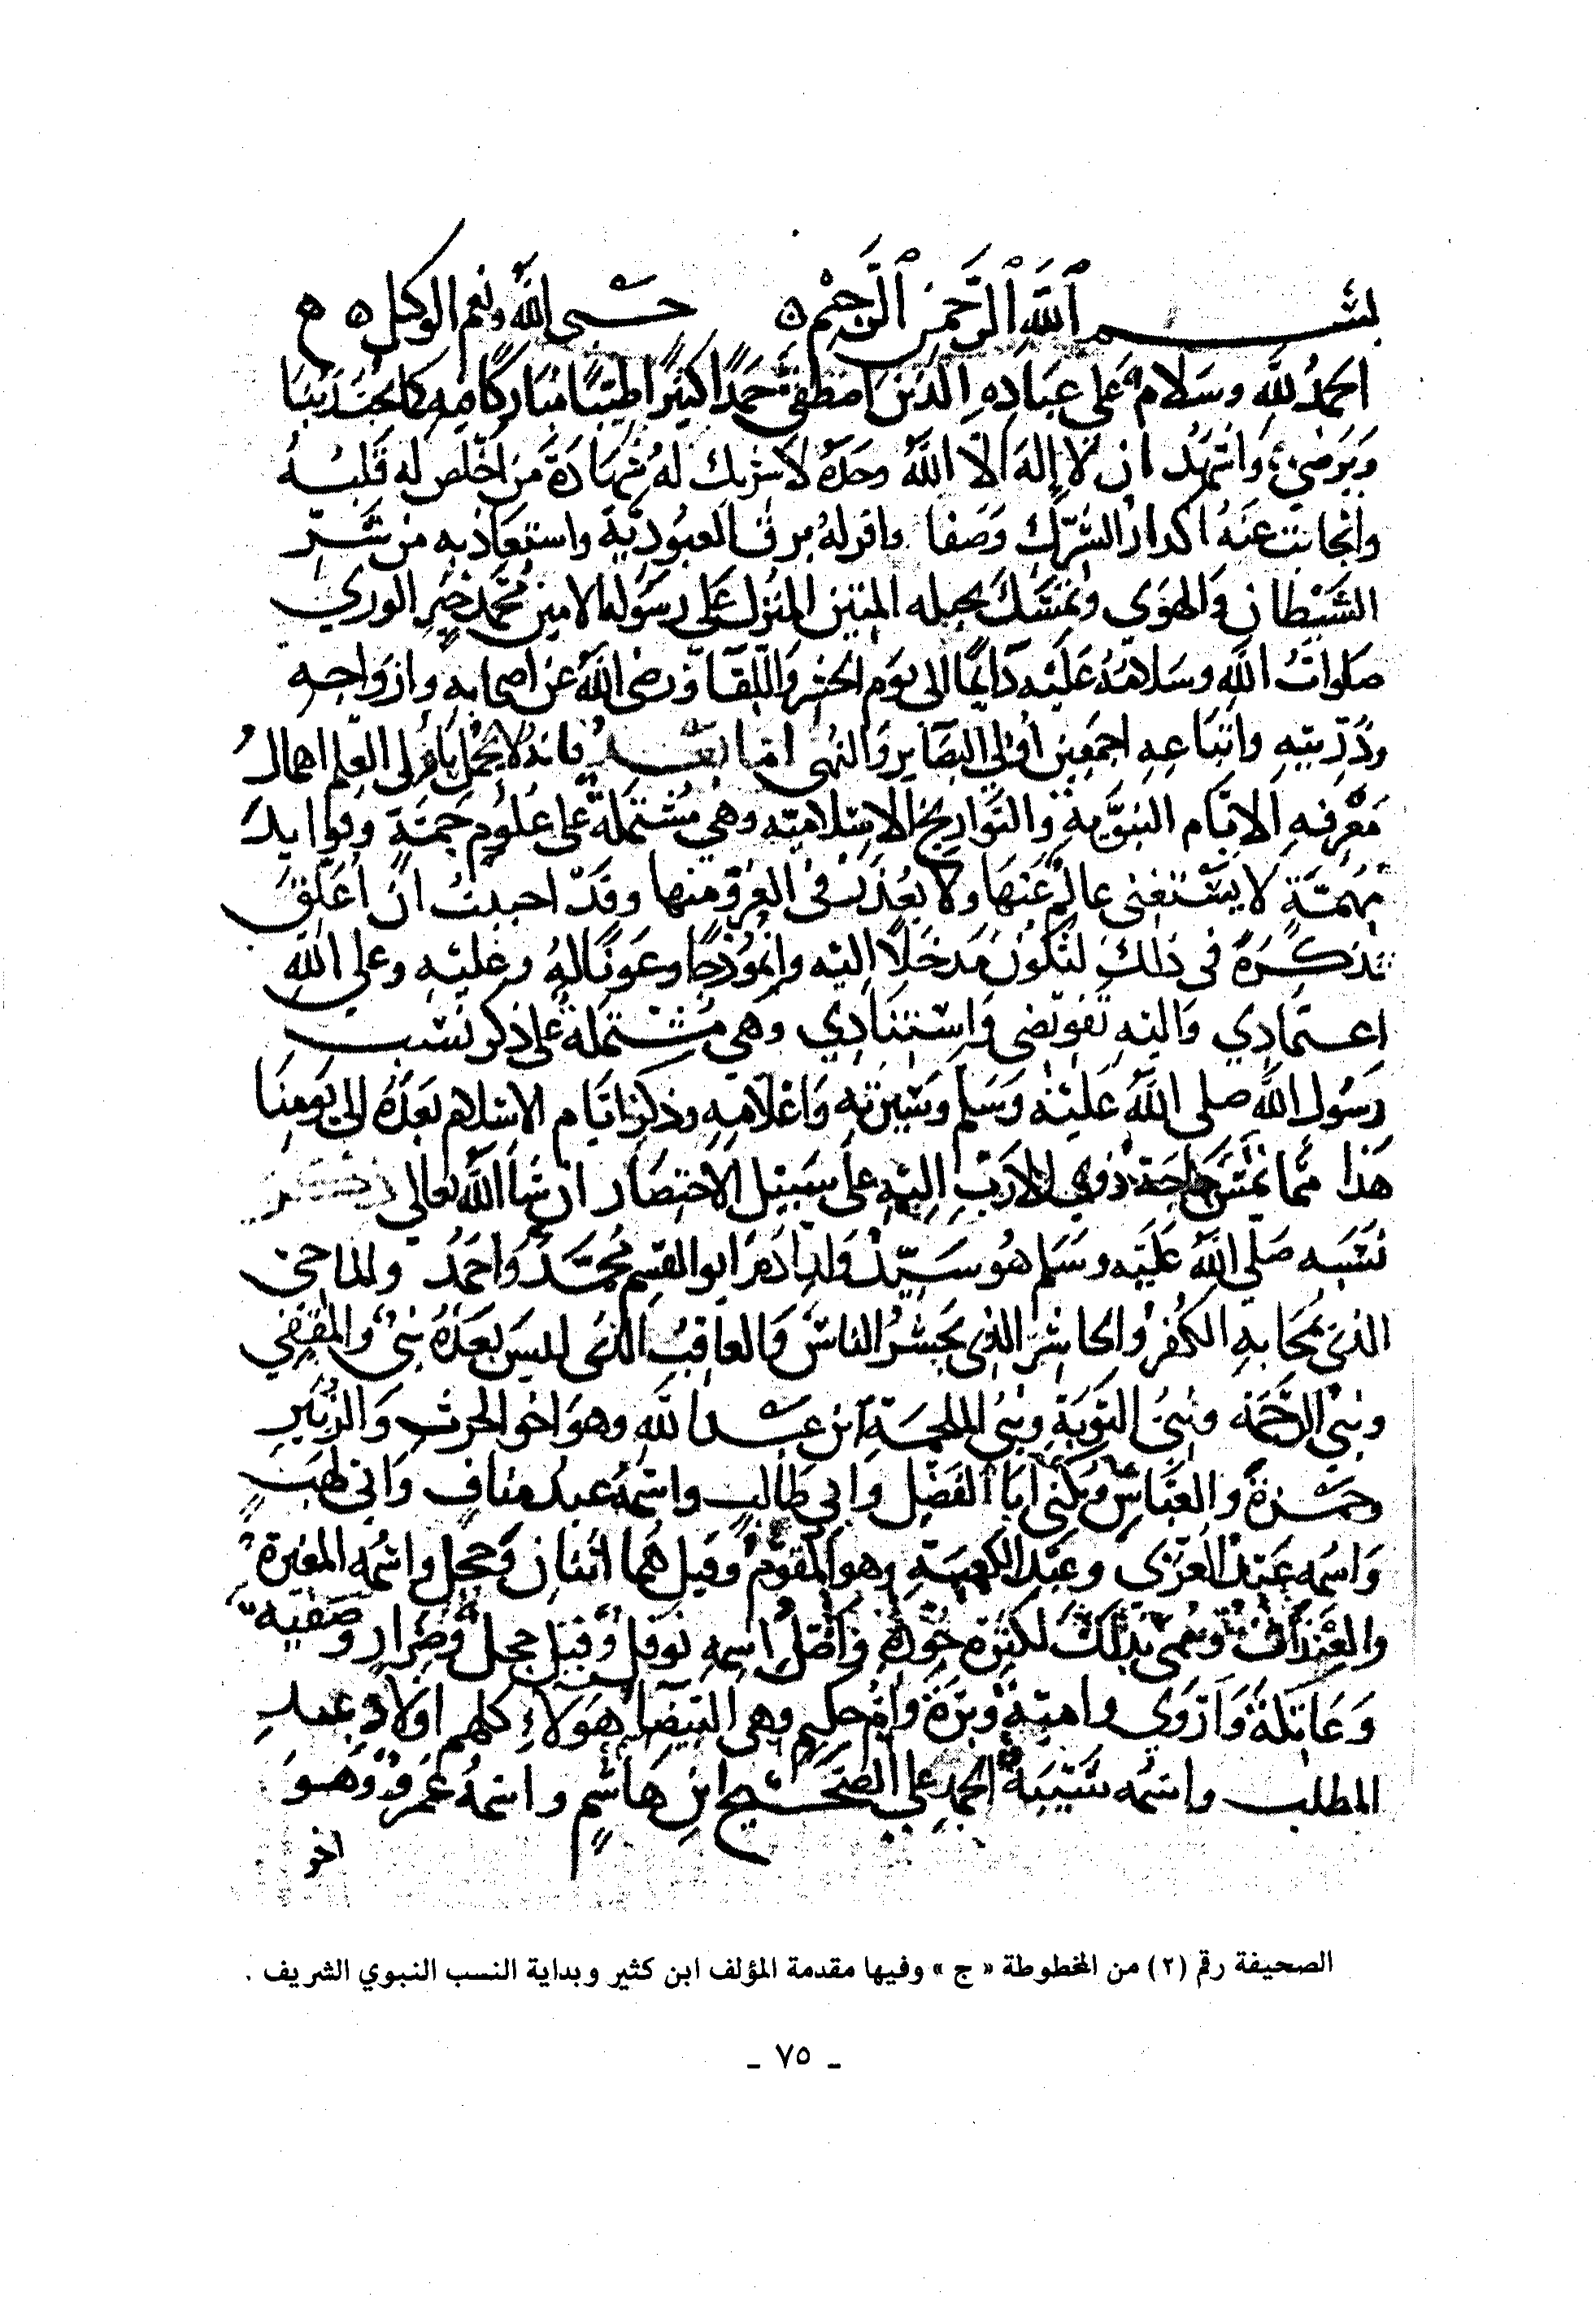 بسم الله الرحمن الرحيم ه حسبي الله ونعم الوكيل ه ه
الحمد لله وسلام على عباده الذين اصطفى حمدا كثيرا طيبا مباركا فيه كما يحب ربنا
ويرضى واشهد ان لا إله الا الله وحده لا شريك له شهادة من اخلص له قلبه
وانجابت عنه اكدار الشرك وصفا واقر له برق العبودية واستعاذ به من شر
الشيطان والهوى وتمسك بحبله المتين المنزل على رسوله الامين محمد خير الورى
صلوات الله وسلامه عليه دائما الى يوم الحشر واللقا ورضى الله عن اصحابه وازواجه
وذريته واتباعه اجمعين أولي البصاير والنهى اما بعد فانه لا يجمل باولي العلم اهمال
معرفه الايام النبوية والتواريخ الاسلاميه وهي مشتملة على علوم جمة وفوايد
مهمة لا يستغنى عالم عنها ولا يعذر في العرو منها وقد احببت ان اعلق
تذكرة في ذلك لتكون مدخلا اليه وانموذجا وعونا له وعليه وعلى الله
اعتمادي واليه تفويضي واستنادي وهي مشتملة على ذكر نسب
رسول الله صلى الله عليه وسلم وسيرته واعلامه وذكر ايام الاسلام بعده الى يومنا
هذا مما تمس حاجة ذوي الارب اليه على سبيل الاختصار ان شا الله تعالى ذكر
نسبه صلى الله عليه وسلم هو سيد ولد ادم ابو القسم محمد واحمد والماحى
الذي يمحا به الكفر والحاشر الذي يحشر الناس والعاقب الذي ليس بعده نبى والمقفي
ونبي الرحمة ونبي التوبة ونبي الملحمة ابن عبد الله وهو اخو الحرث والزبير
وحمزة والعباس ويكنى ابا الفضل وابي طالب واسمه عبد مناف وابي لهب
واسمه عبد العزى وعبد الكعبة وهو المقوم وقيل هما اثنان وحجل واسمه المغيرة
والغيداق وسمى بذلك لكثرة جوده واصل اسمه نوفل وقيل حجل وضرار وصفيه
وعاتكة واروى واميمة وبرة وام حكيم وهي البيضا هولاء كلهم اولاد عبد
المطلب واسمه شيبة الحمد على الصحيح ابن هاشم واسمه عمرو وهو
اخو
الصحيفة رقم (٢) من المخطوطة « ج » وفيها مقدمة المؤلف ابن كثير وبداية النسب النبوي الشريف .
ـ ٧٥ ـ